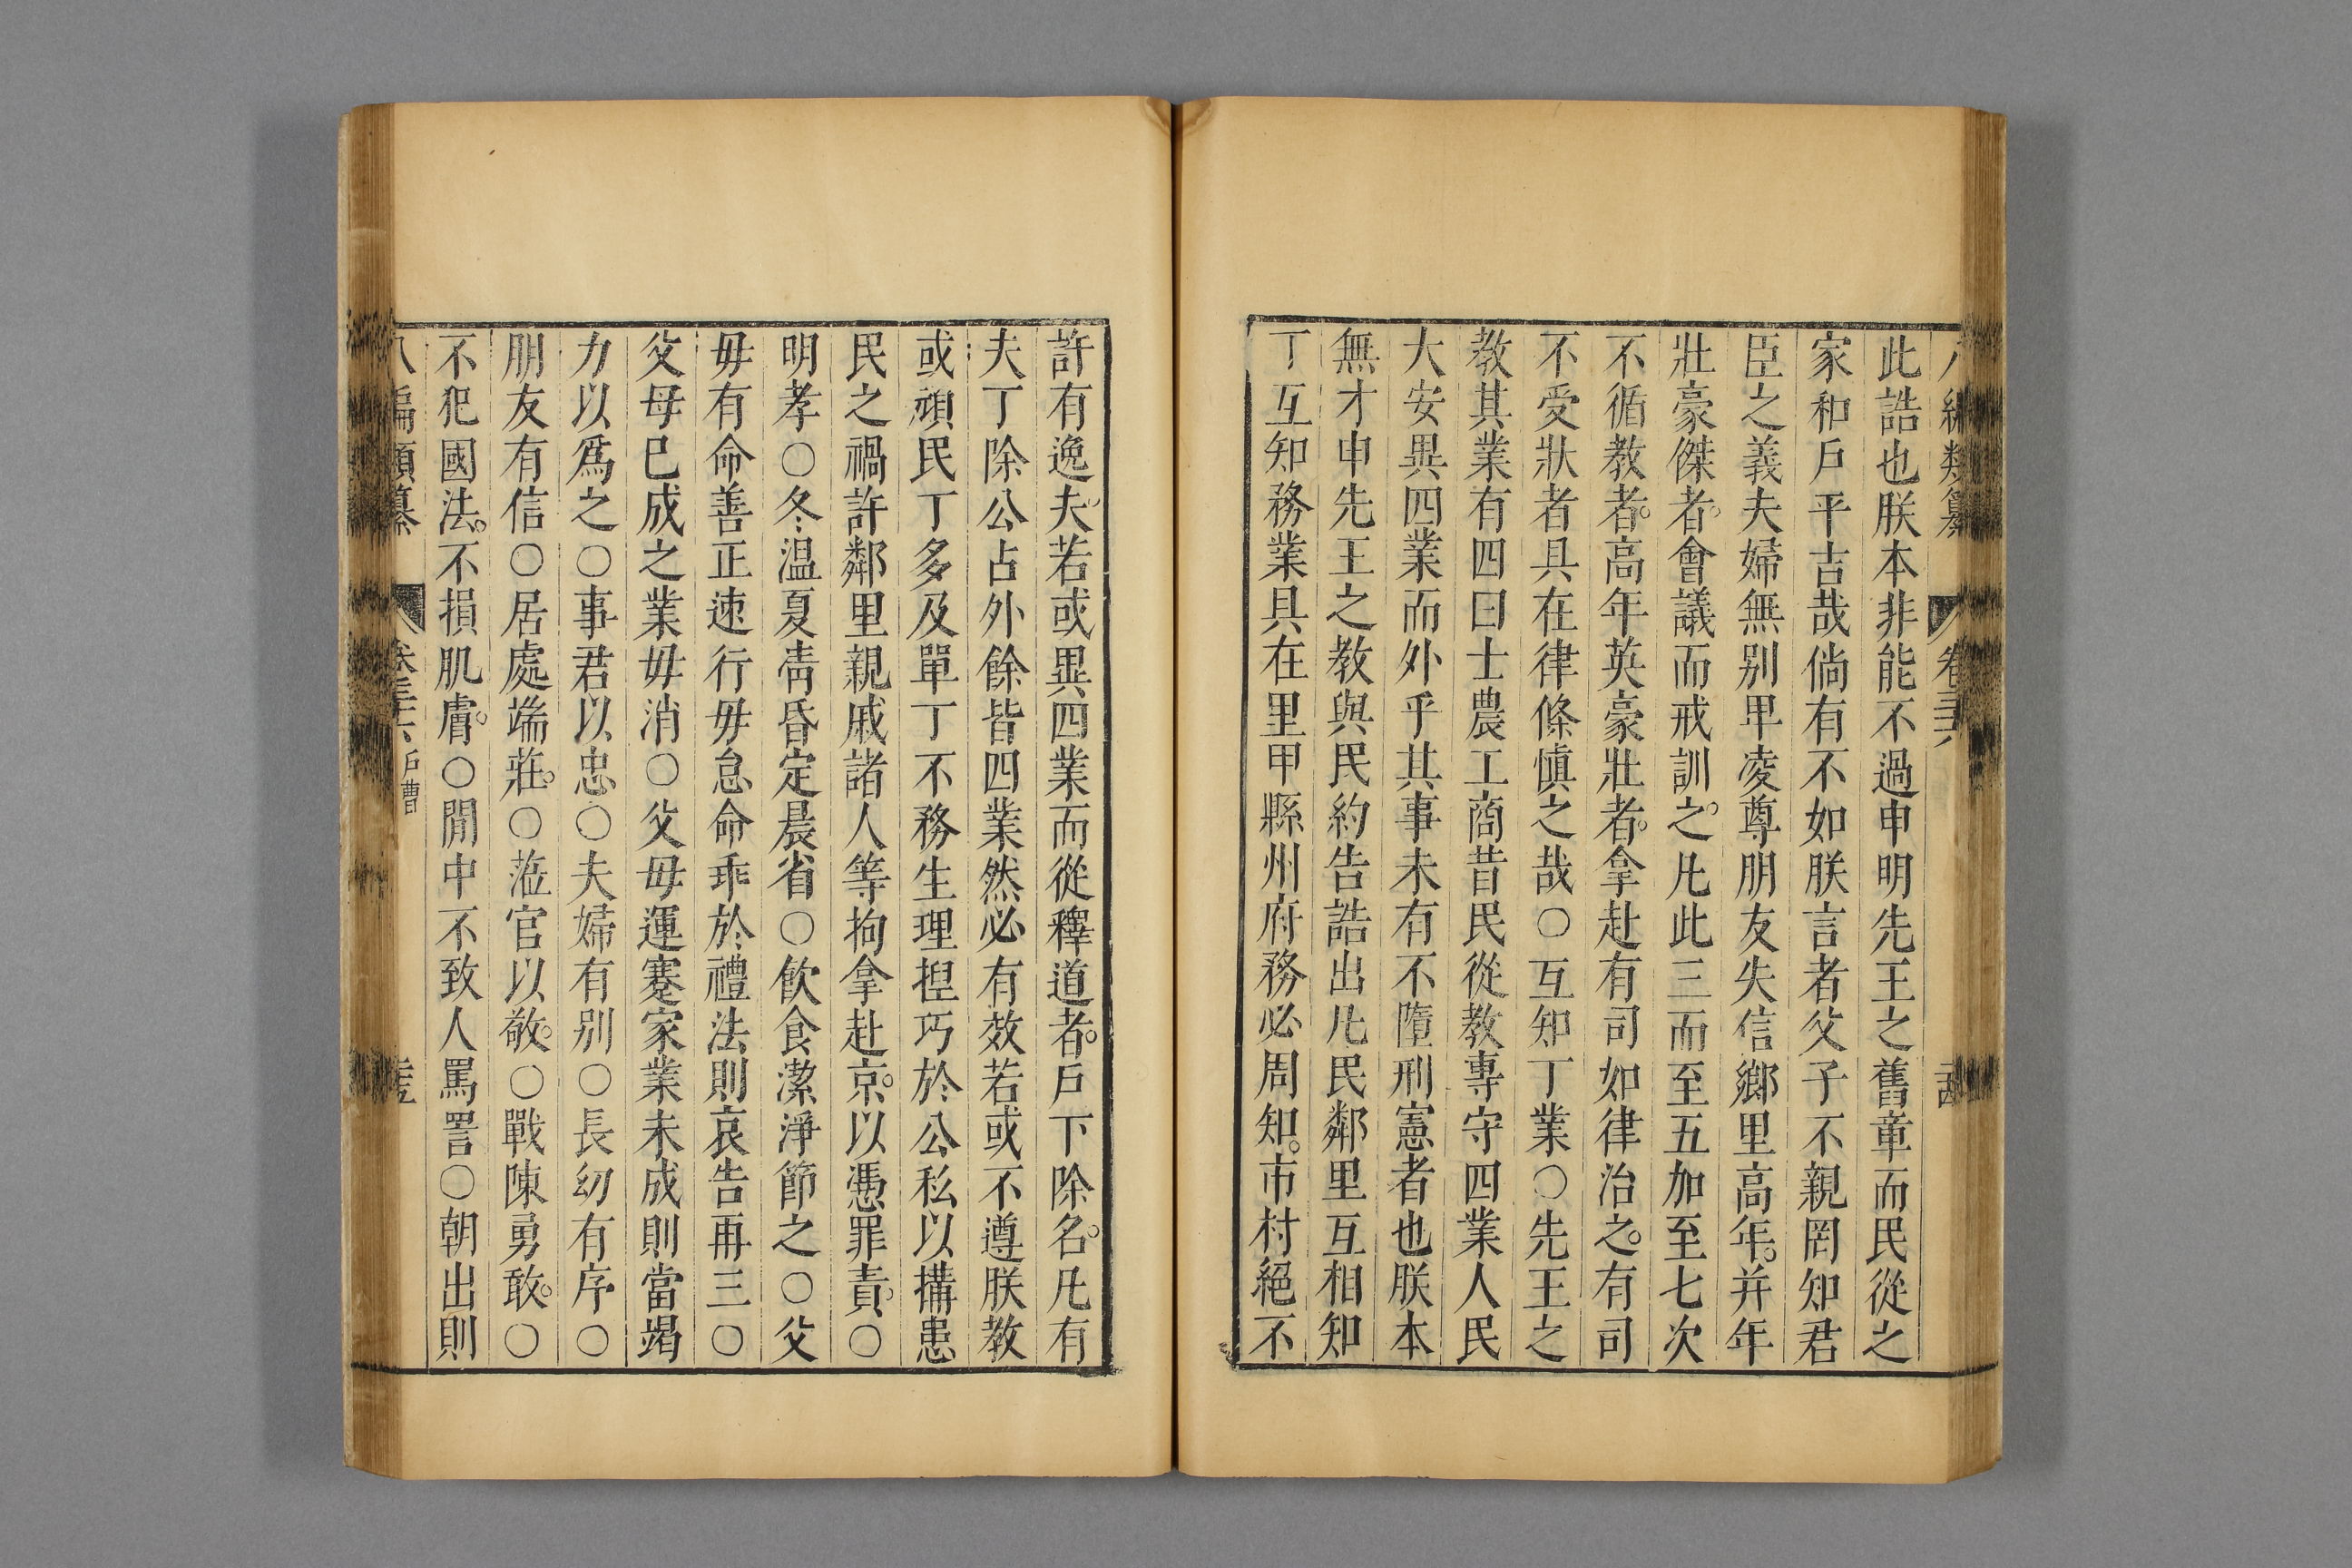 八編類纂 卷三六
此誥也朕本非能不過申明先王之舊章而民從之
家和戶平吉哉倘有不如朕言者父子不親罔知君
臣之義夫婦無别卑凌尊朋友失信鄉里高年。并年
壯豪傑者。會議而戒訓之。凡此三而至五加至七次
不循教者。高年英豪壯者。拿赴有司如律治之。有司
不受狀者具在律條愼之哉○互知丁業○先王之
教其業有四曰士農工商昔民從教專守四業人民
大安異四業而外乎其事未有不隳刑憲者也朕本
無才申先王之教與民約告誥出凡民鄰里互相知
丁互知務業具在里甲縣州府務必周知。市村絕不
許有逸夫。若或異四業而從釋道者。戶下除名。凡有
夫丁除公占外餘皆四業然必有效若或不遵朕教
或頑民丁多及單丁不務生理捏巧於公私以搆患
民之禍許鄰里親戚諸人等拘拿赴京。以憑罪責。○
明孝○冬温夏凊昏定晨省○飲食潔淨節之○父
毋有命善正速行毋怠命乖於禮法則哀告再三○
父母已成之業毋消○父毋運蹇家業未成則當竭
力以爲之○事君以忠○夫婦有别○長幼有序○
朋友有信○居處端莊。○蒞官以敬。○戰陳勇敢。○
不犯國法。不損肌膚。○閒中不致人罵詈○朝出則
八編類纂 卷三六 戶曹